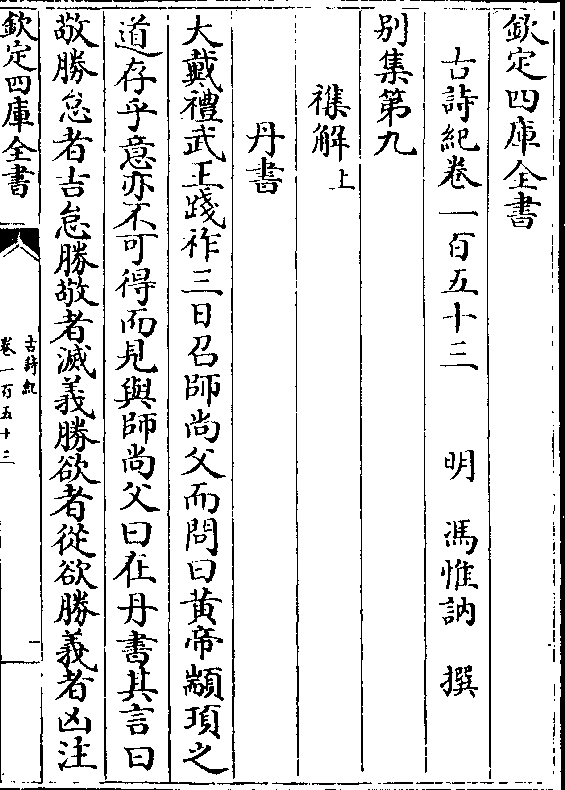 欽定四庫全書
古詩紀卷一百五十三　明　馮惟訥　撰
別集第九
襍解上
丹書
大戴禮武王踐祚三日召師尚父而問曰黃帝顓頊之
道存乎意亦不可得而見與師尚父曰在丹書其言曰
敬勝怠者吉怠勝敬者滅義勝欲者從欲勝義者凶注
欽定四庫全書
古詩紀
卷一百五十三
一